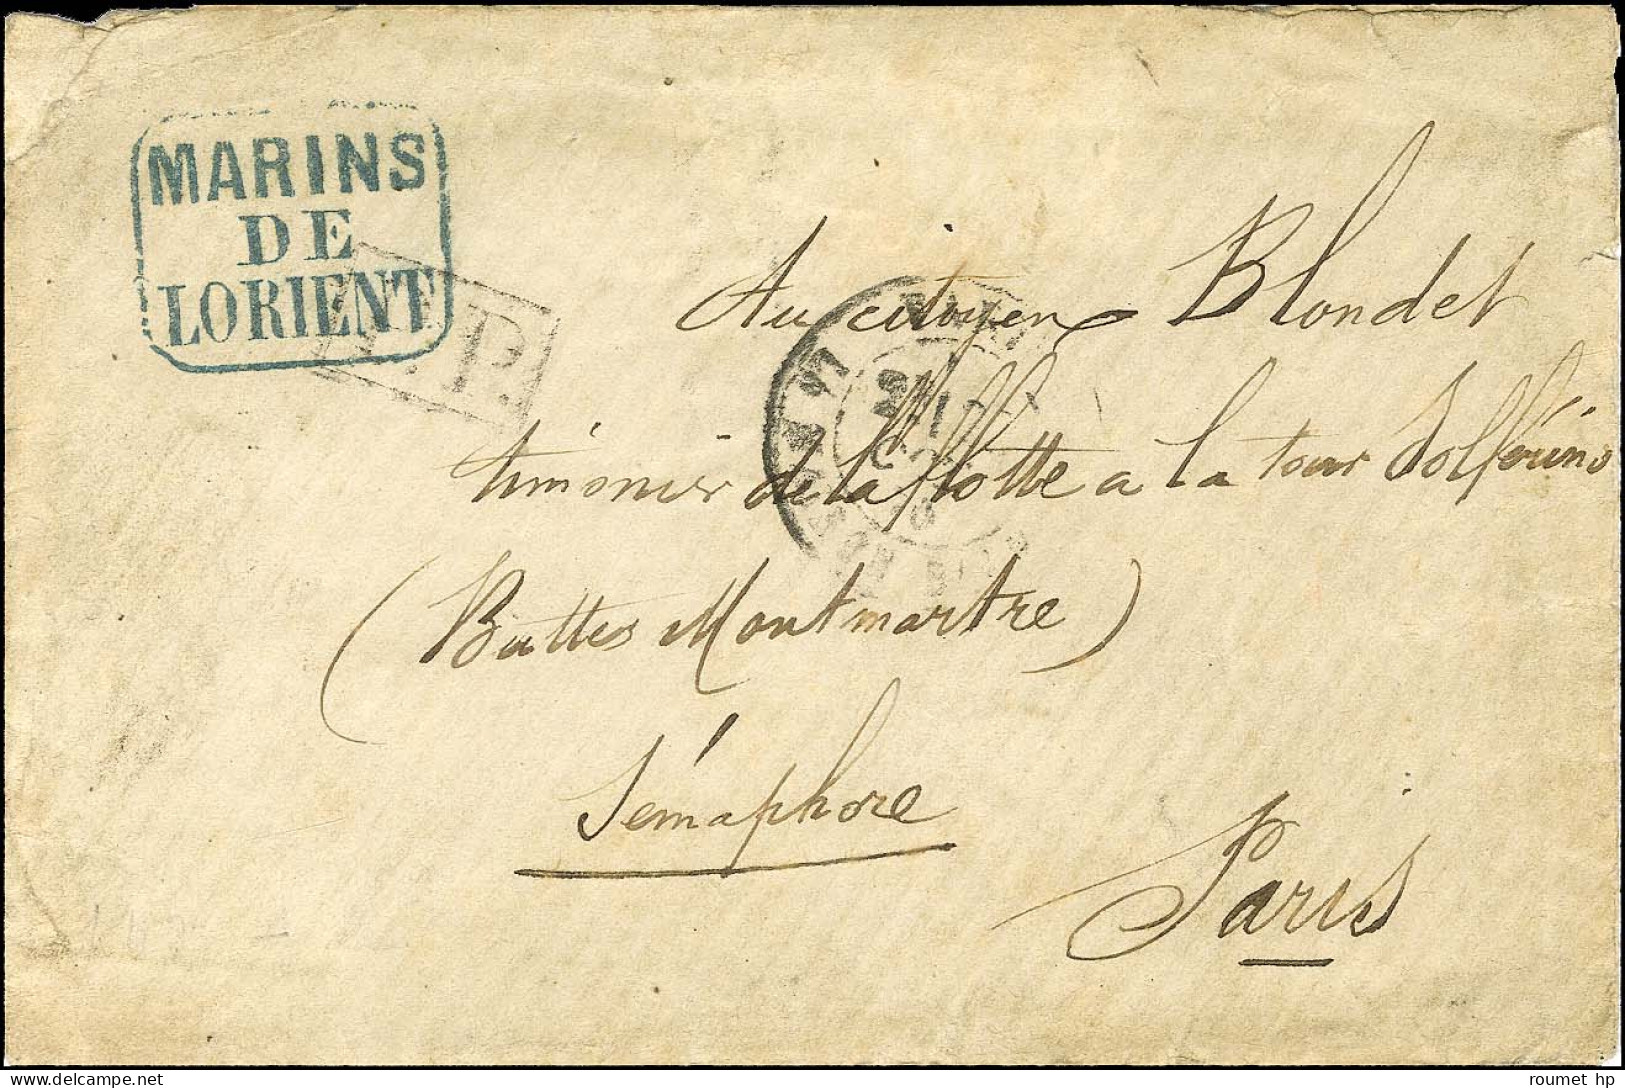 MARINS
DE
LORIENT
P.P.
Au citoyen Blondet
timonier de la flotte a la tour Solférino
(Buttes Montmartre)
Sémaphore
Paris
roumet hp